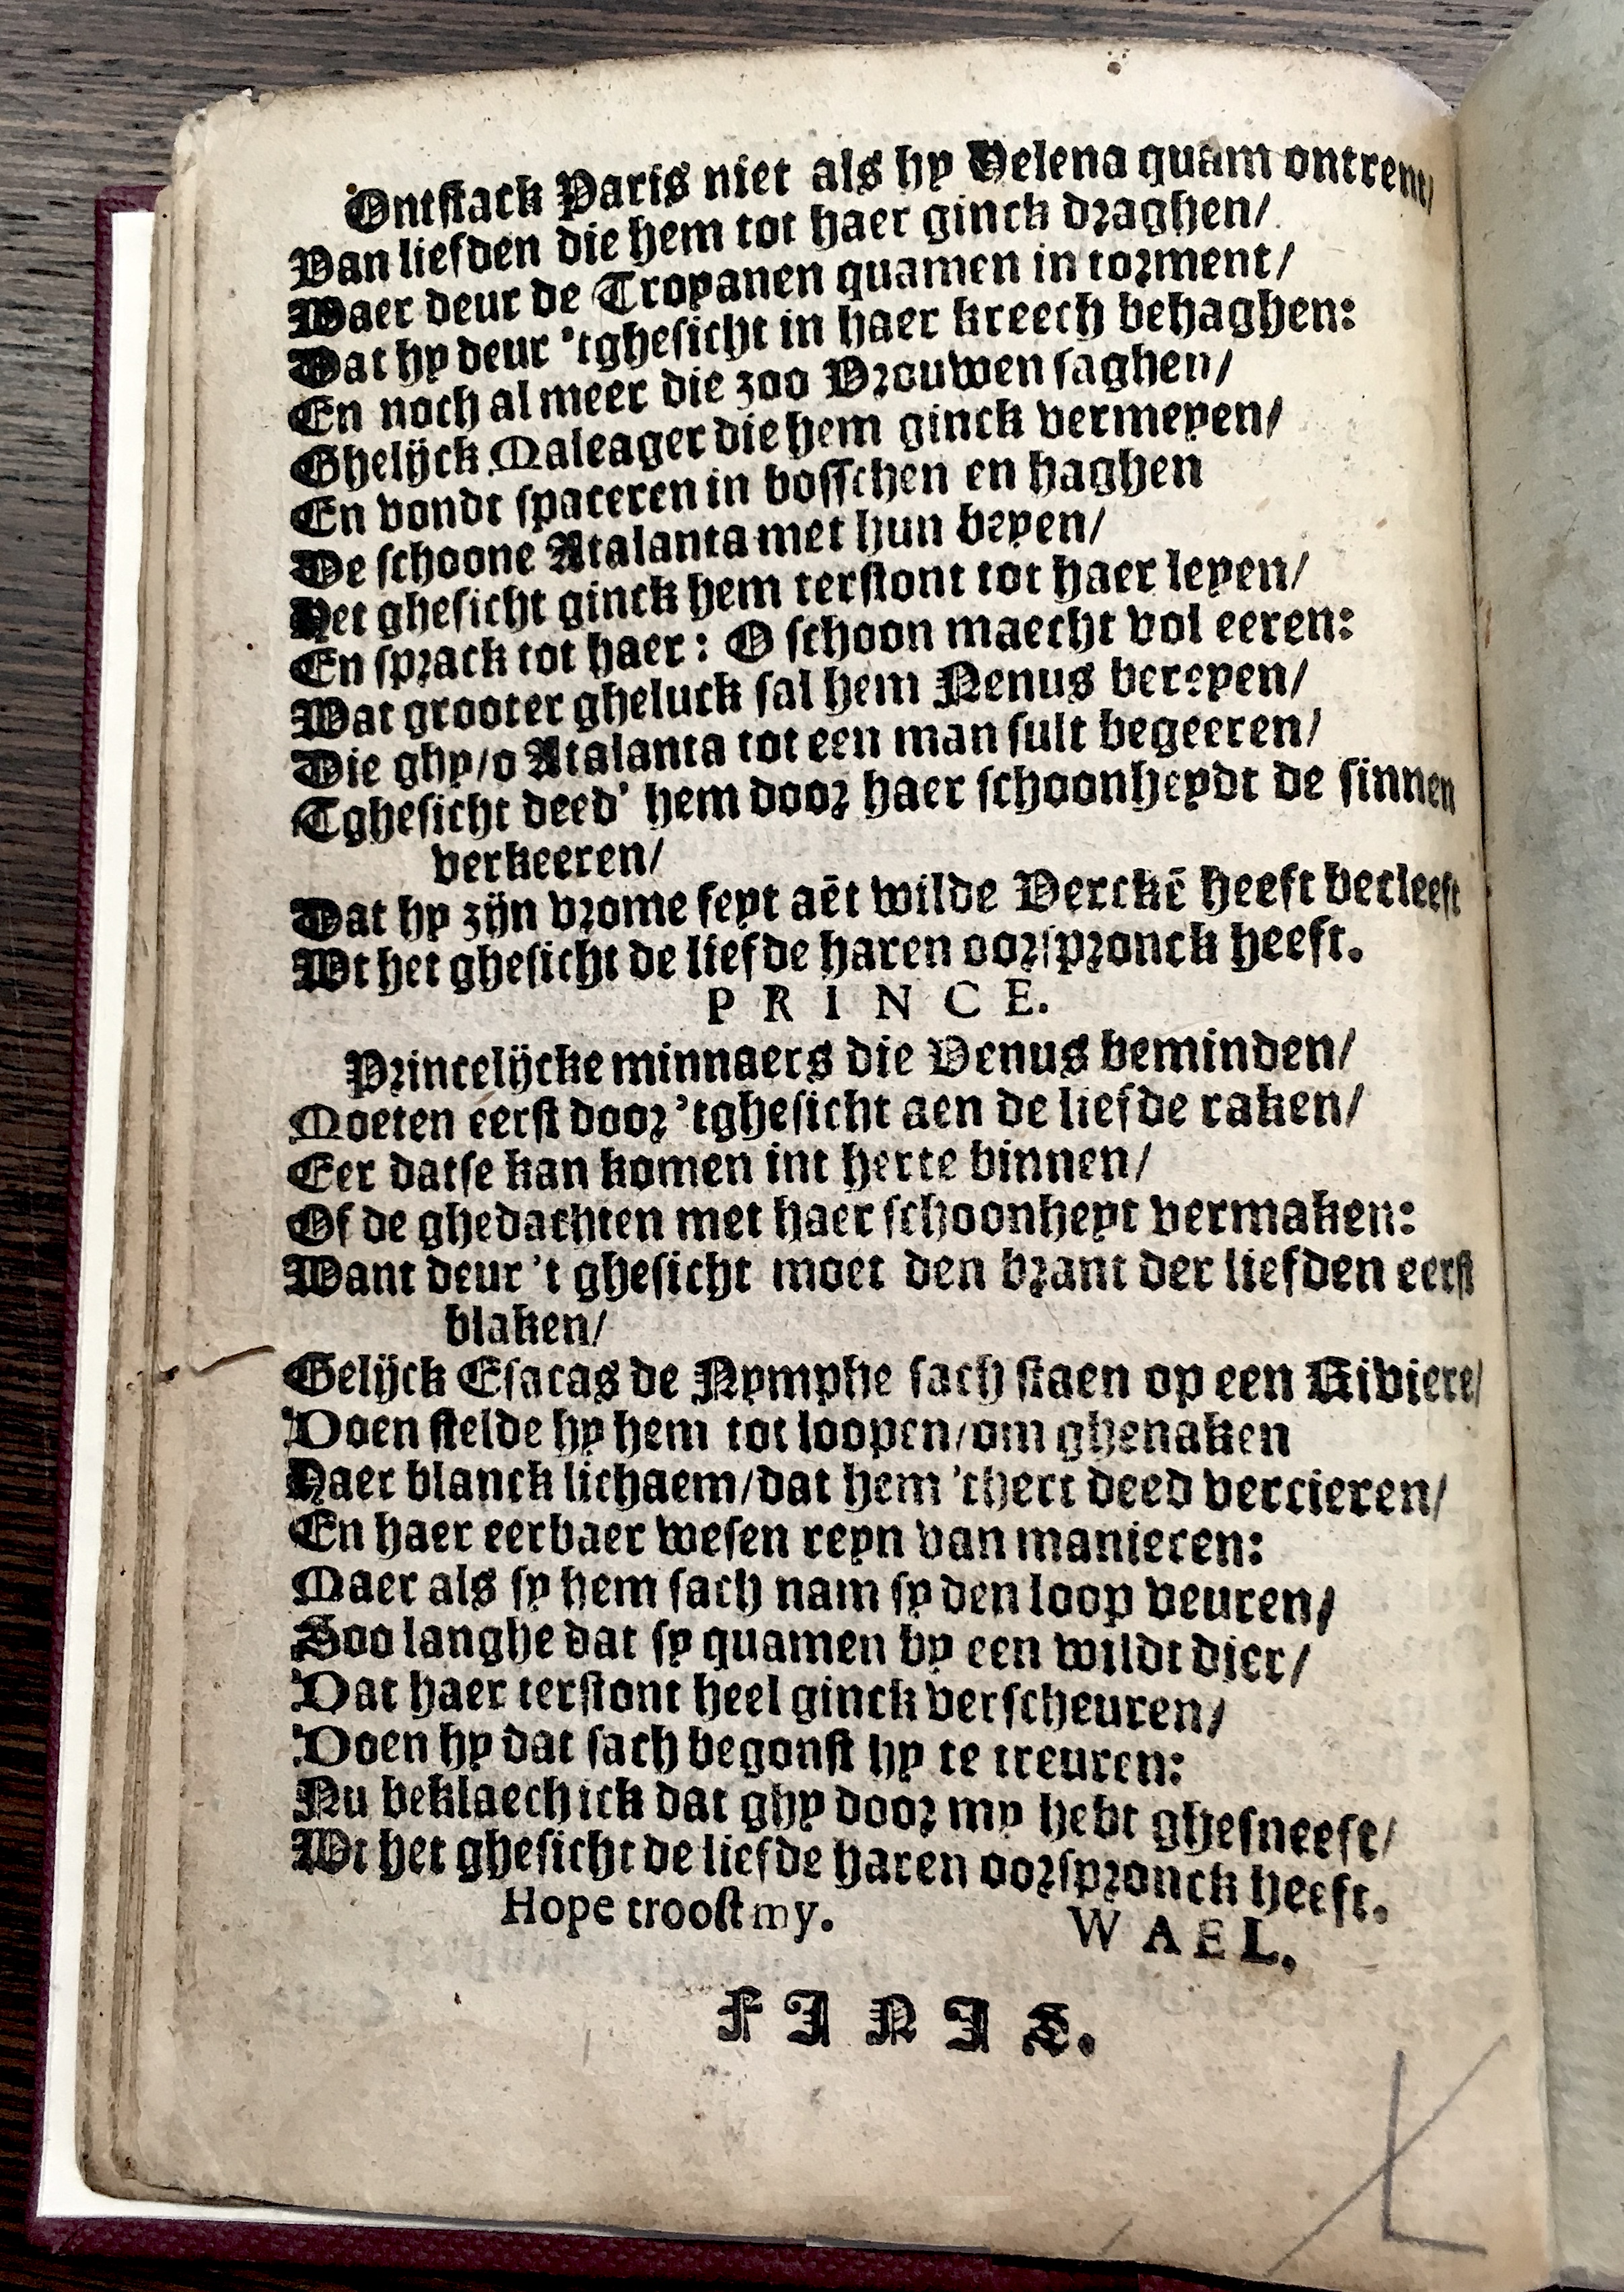 Ontstack Paris niet als hy Helena quam ontrent/
Van liefden die hem tot haer ginck draghen/
Waer deur de Troyanen quamen in torment/
Dat hy deur 'tghesicht in haer kreech behaghen:
En noch al meer die zoo Vrouwen saghen/
Ghelijck Maleager die hem ginck vermeyen/
En vondt spaceren in bosschen en haghen
De schoone Atalanta met hun beyen/
Het ghesicht ginck hem terstont tot haer leyen/
En sprack tot haer: O schoon maecht vol eeren:
Wat grooter gheluck sal hem Nenus bereyen/
Die ghy/o Atalanta tot een man sult begeeren/
Tghesicht deed' hem door haer schoonheydt de sinnen
verkeeren/
Dat hy zijn vrome feyt aēt wilde Verckē heeft becleeft
Wt het ghesicht de liefde haren oorspronck heeft.
PRINCE.
Princelijcke minnaers die Venus beminden/
Moeten eerst door 'tghesicht aen de liefde raken/
Eer datse kan komen int herte binnen/
Of de ghedachten met haer schoonheyt vermaken:
Want deur 't ghesicht moet den brant der liefden eerst
blaken/
Gelijck Esacas de Nymphe sach staen op een Riviere/
Doen stelde hy hem tot loopen/om ghenaken
Haer blanck lichaem/dat hem 'thert deed vercieren/
En haer eerbaer wesen reyn van manieren:
Maer als sy hem sach nam sy den loop veuren/
Soo langhe dat sy quamen by een wildt dier/
Dat haer terstont heel ginck verscheuren/
Doen hy dat sach begonst hy te treuren:
Nu beklaech ick dat ghy door my hebt ghesneeft/
Wt het ghesicht de liefde haren oorspronck heeft.
Hope troost my. WAEL.
FINIS.